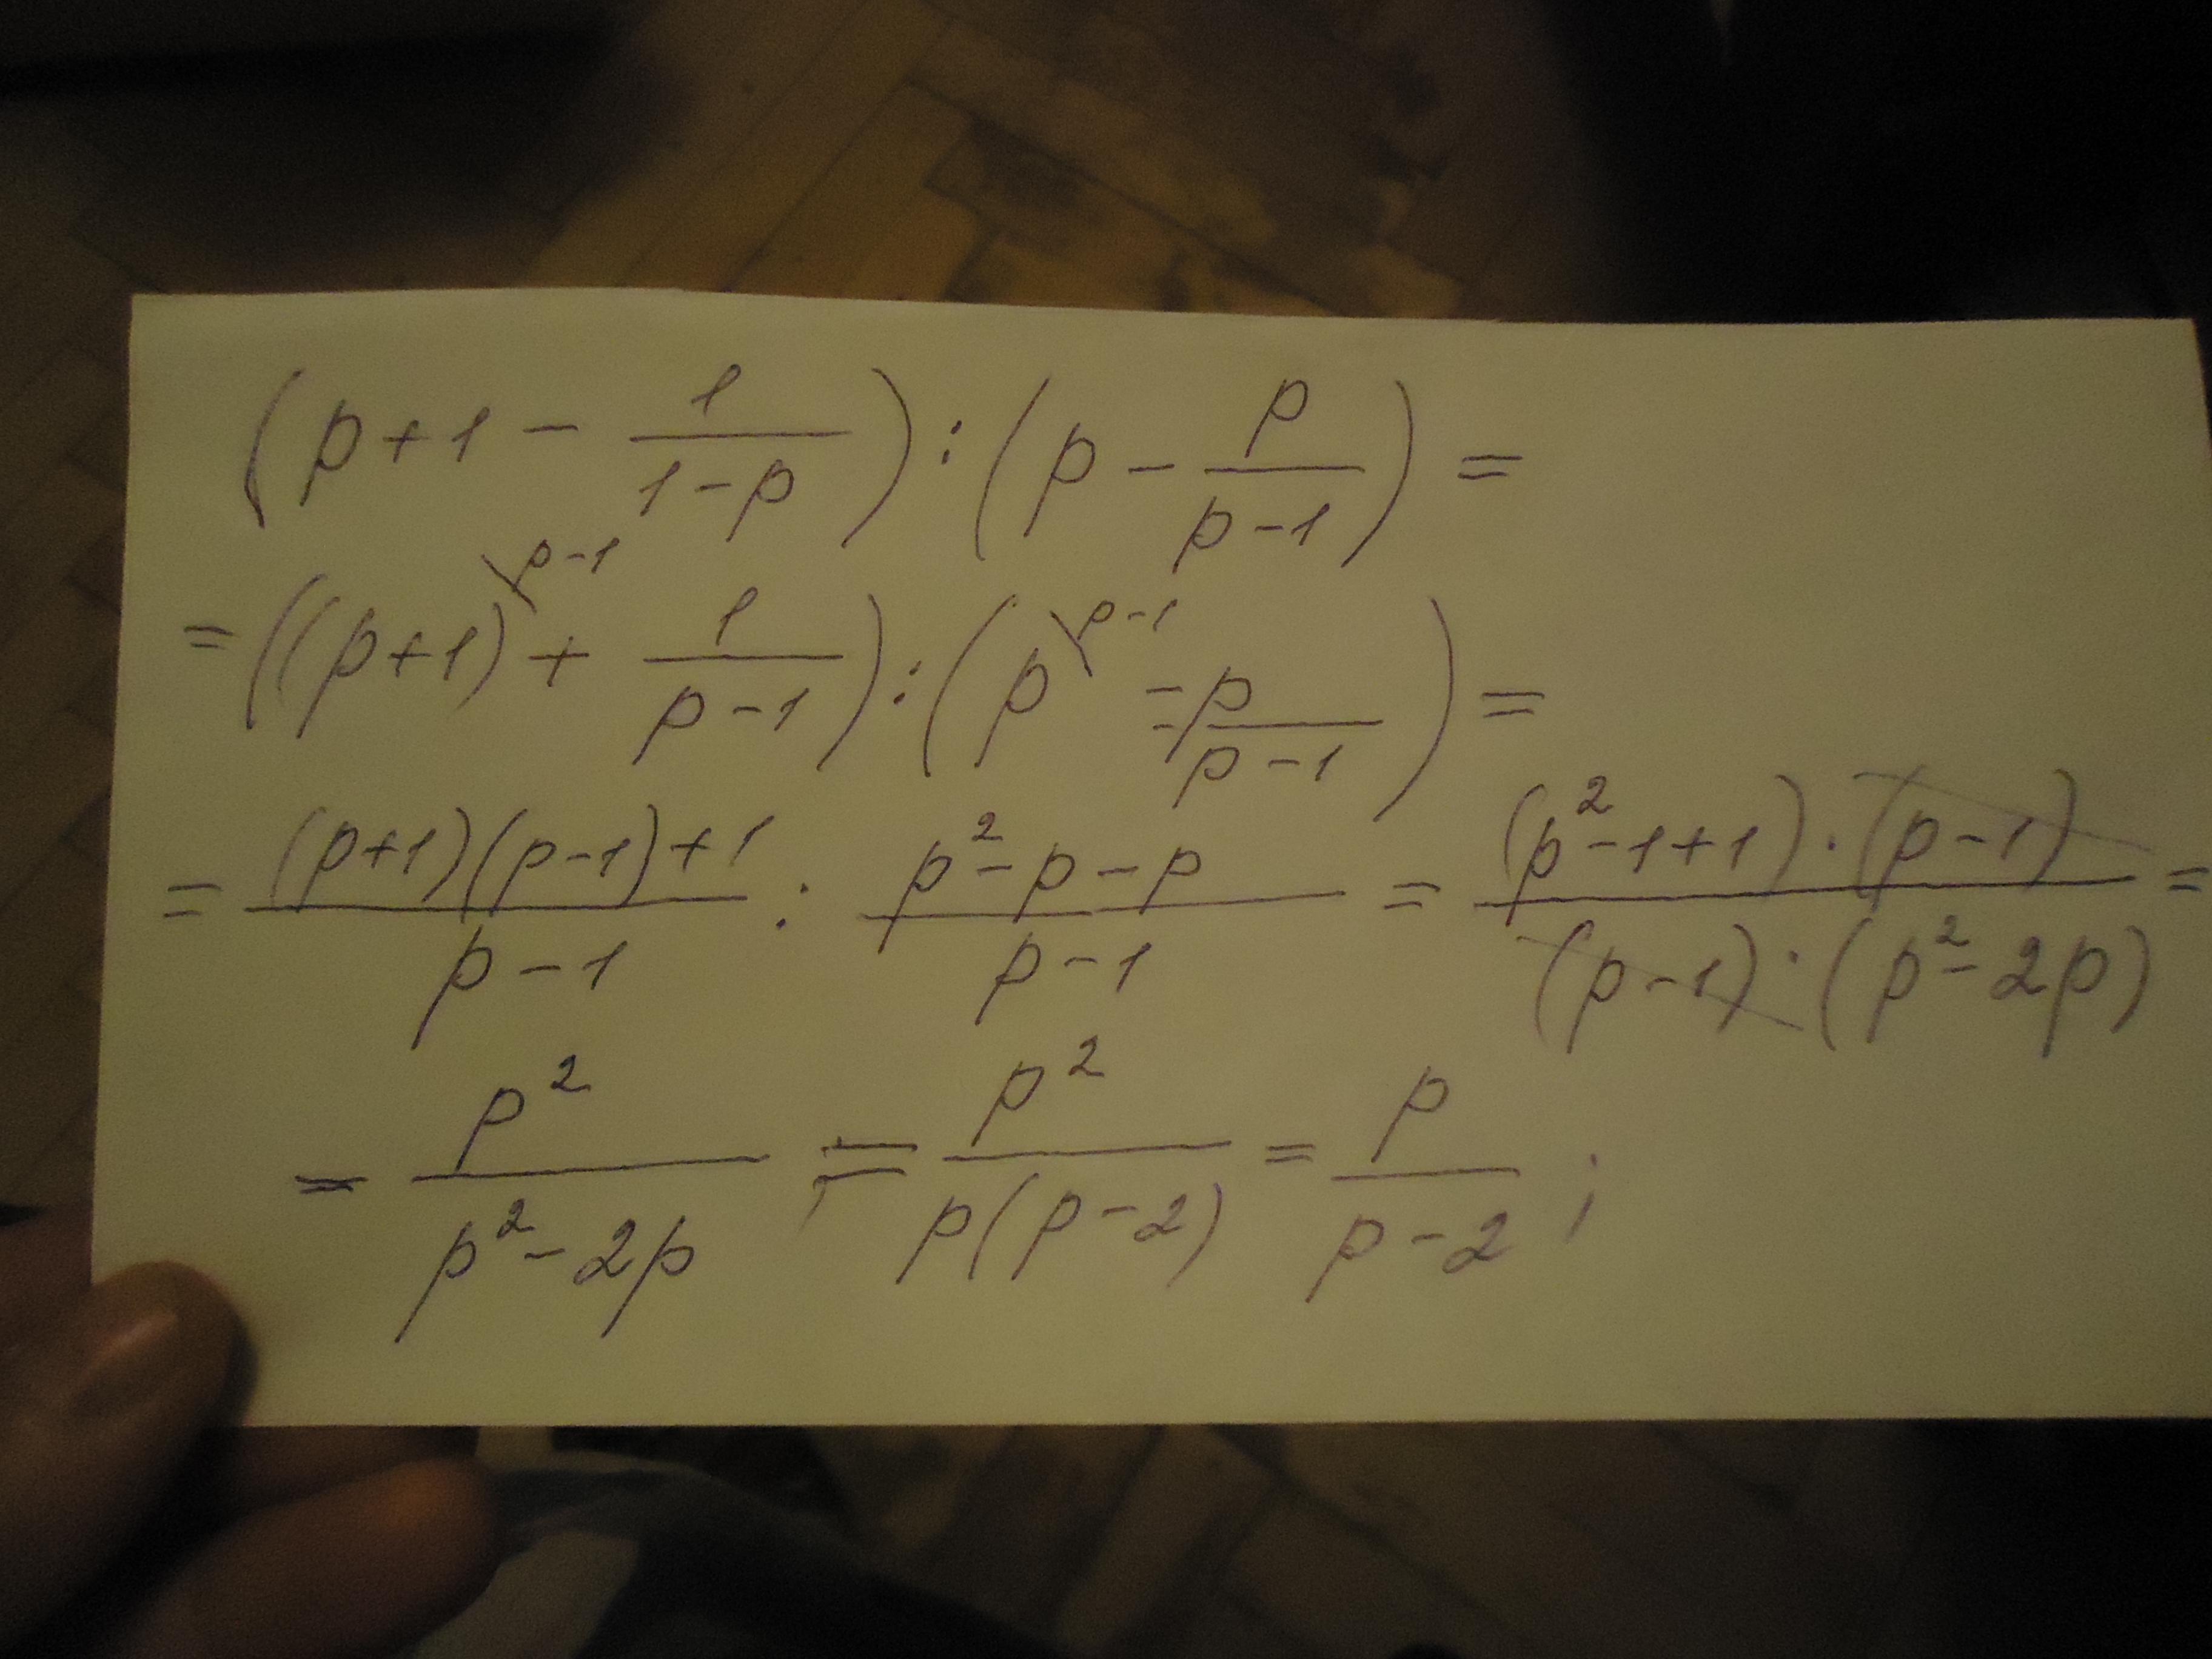 (p+1 - 1/(1-p)) : (p - p/(p-1)) =
= ((p+1)^\p-1 + 1/(p-1)) : (p^\p-1 - p/(p-1)) =
= ((p+1)(p-1)+1)/(p-1) : (p²-p-p)/(p-1) = ((p²-1+1)·(p-1))/((p-1)·(p²-2p)) =
= p²/(p²-2p) = p²/(p(p-2)) = p/(p-2) ;